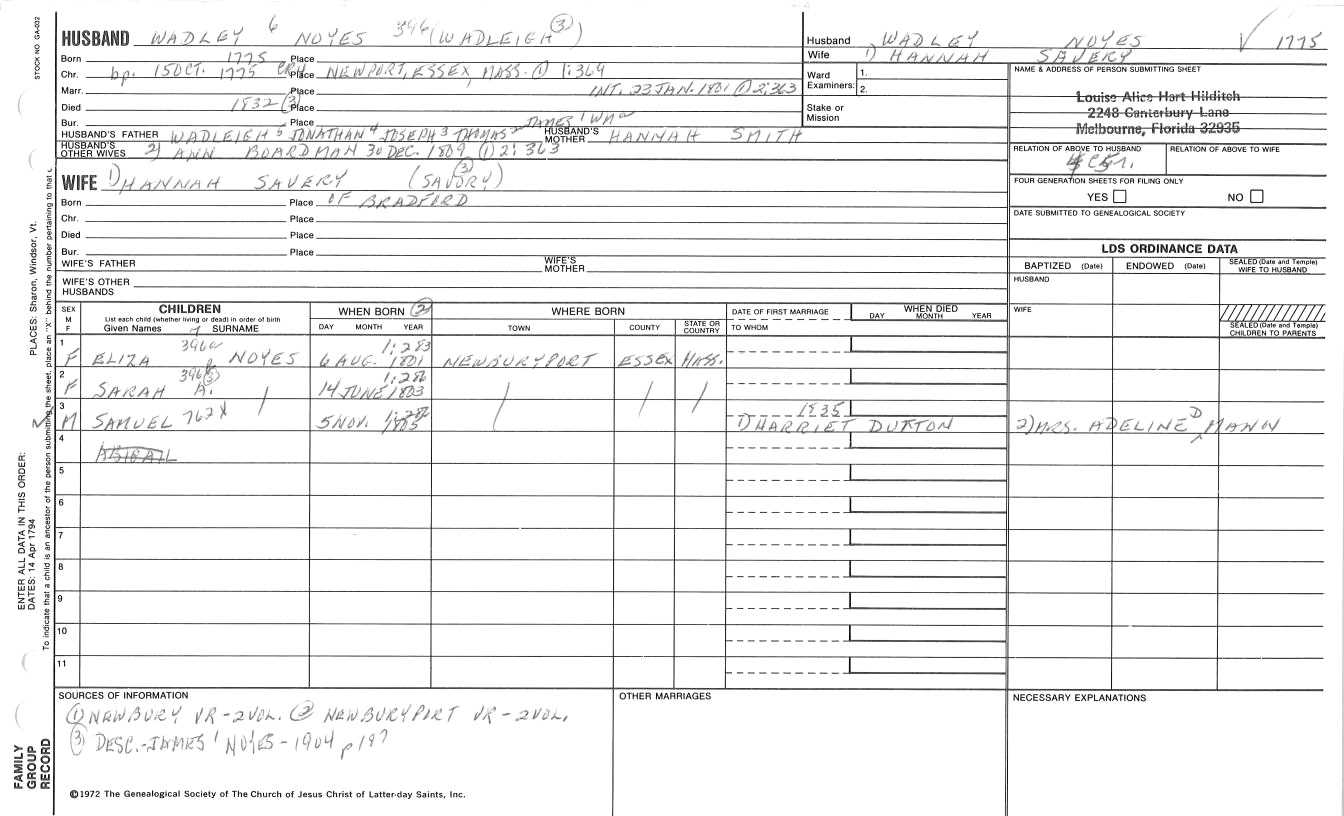 STOCK NO. GA-032
HUSBAND WADLEY 6 NOYES 396 (WADLEIGH (3))
Born 1775 Place
Chr. bp. 15 OCT. 1775 Place NEWPORT, ESSEX, MASS. (1) 1:364
Marr. Place INT. 23 JAN. 1801 (1) 2:363
Died 1832 (3) Place
Bur. Place JAMES 1 WM a
HUSBAND'S FATHER WADLEIGH 5 JONATHAN 4 JOSEPH 3 THOMAS 2 HUSBAND'S MOTHER HANNAH SMITH
HUSBAND'S OTHER WIVES 2) ANN BOARDMAN 30 DEC. 1809 (1) 2:363
WIFE 1) HANNAH SAVERY (SAVORY (3))
Born Place OF BRADFORD
Chr. Place
Died Place
Bur. Place
WIFE'S FATHER WIFE'S MOTHER
WIFE'S OTHER HUSBANDS
Husband WADLEY NOYES √ 1775
Wife 1) HANNAH SAVERY
Ward Examiners: 1.
2.
Stake or Mission
NAME & ADDRESS OF PERSON SUBMITTING SHEET
Louise Alice Hart Hilditch
2248 Canterbury Lane
Melbourne, Florida 32935
RELATION OF ABOVE TO HUSBAND RELATION OF ABOVE TO WIFE
FOUR GENERATION SHEETS FOR FILING ONLY
YES NO
DATE SUBMITTED TO GENEALOGICAL SOCIETY
LDS ORDINANCE DATA
BAPTIZED (Date) ENDOWED (Date) SEALED (Date and Temple) WIFE TO HUSBAND
HUSBAND
WIFE
SEALED (Date and Temple) CHILDREN TO PARENTS
SEX M F CHILDREN WHEN BORN (2) WHERE BORN DATE OF FIRST MARRIAGE WHEN DIED
List each child (whether living or dead) in order of birth
Given Names 7 SURNAME DAY MONTH YEAR TOWN COUNTY STATE OR COUNTRY TO WHOM DAY MONTH YEAR
1 F ELIZA NOYES 6 AUG. 1801 1:283 NEWBURYPORT ESSEX MASS.
2 F SARAH A. (3) / 14 JUNE 1803 1:286 / / /
3 M SAMUEL 762X 5 NOV. 1805 1835 1) HARRIET DUTTON 2) MRS. ADELINE D MANN
4 ABIGAIL
5
6
7
8
9
10
11
SOURCES OF INFORMATION
(1) NEWBURY VR - 2 VOL. (2) NEWBURYPORT VR - 2 VOL.
(3) DESC. - JAMES 1 NOYES - 1904 p 197
OTHER MARRIAGES
NECESSARY EXPLANATIONS
©1972 The Genealogical Society of The Church of Jesus Christ of Latter-day Saints, Inc.
PLACES: Sharon, Windsor, Vt.
ENTER ALL DATA IN THIS ORDER:
DATES: 14 Apr 1794
To indicate that a child is an ancestor of the person submitting the sheet, place an "X" behind the number pertaining to that c
FAMILY GROUP RECORD